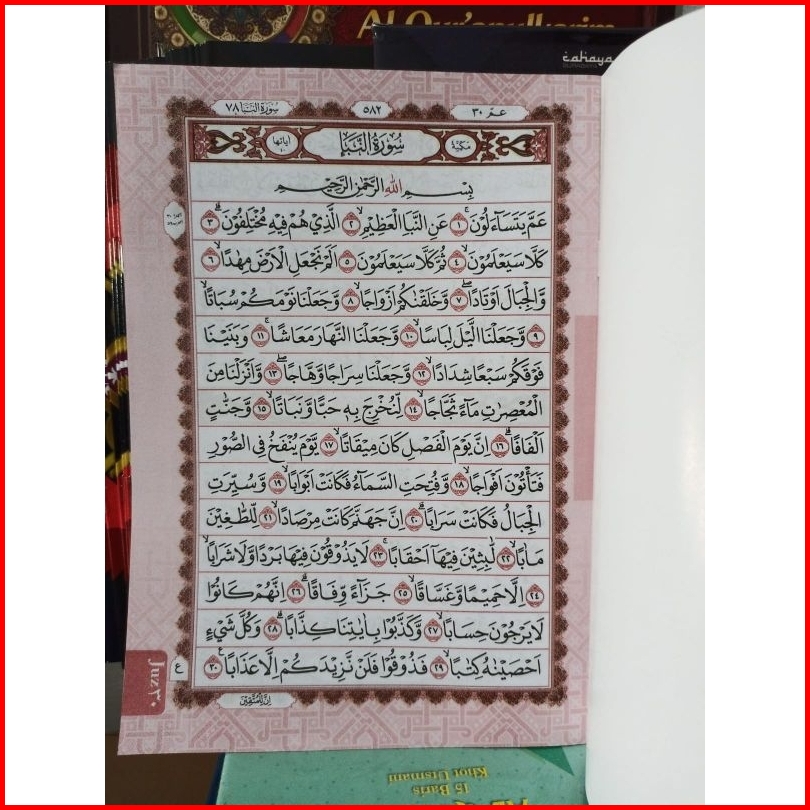 Al Qur'anulkarim
cahaya
عمّ ٣٠
٥٨٢
سُوْرَةُ النَّبَأِ ٧٨
مَكِّيَّة
سُوْرَةُ النَّبَإِ
اٰيَاتُهَا
بِسْمِ اللّٰهِ الرَّحْمٰنِ الرَّحِيْمِ
عَمَّ يَتَسَاۤءَلُوْنَۚ ١ عَنِ النَّبَاِ الْعَظِيْمِۙ ٢ الَّذِيْ هُمْ فِيْهِ مُخْتَلِفُوْنَۗ ٣
كَلَّا سَيَعْلَمُوْنَۙ ٤ ثُمَّ كَلَّا سَيَعْلَمُوْنَ ٥ اَلَمْ نَجْعَلِ الْاَرْضَ مِهٰدًاۙ ٦
وَّالْجِبَالَ اَوْتَادًاۖ ٧ وَّخَلَقْنٰكُمْ اَزْوَاجًاۙ ٨ وَّجَعَلْنَا نَوْمَكُمْ سُبَاتًاۙ
٩ وَّجَعَلْنَا الَّيْلَ لِبَاسًاۙ ١٠ وَّجَعَلْنَا النَّهَارَ مَعَاشًاۚ ١١ وَبَنَيْنَا
فَوْقَكُمْ سَبْعًا شِدَادًاۙ ١٢ وَّجَعَلْنَا سِرَاجًا وَّهَّاجًاۖ ١٣ وَّاَنْزَلْنَا مِنَ
الْمُعْصِرٰتِ مَاۤءً ثَجَّاجًاۙ ١٤ لِّنُخْرِجَ بِهٖ حَبًّا وَّنَبَاتًاۙ ١٥ وَّجَنّٰتٍ
اَلْفَافًاۗ ١٦ اِنَّ يَوْمَ الْفَصْلِ كَانَ مِيْقَاتًاۙ ١٧ يَّوْمَ يُنْفَخُ فِى الصُّوْرِ
فَتَأْتُوْنَ اَفْوَاجًاۙ ١٨ وَّفُتِحَتِ السَّمَاۤءُ فَكَانَتْ اَبْوَابًاۙ ١٩ وَّسُيِّرَتِ
الْجِبَالُ فَكَانَتْ سَرَابًاۗ ٢٠ اِنَّ جَهَنَّمَ كَانَتْ مِرْصَادًاۙ ٢١ لِّلطّٰغِيْنَ
مَاٰبًاۙ ٢٢ لّٰبِثِيْنَ فِيْهَآ اَحْقَابًاۚ ٢٣ لَا يَذُوْقُوْنَ فِيْهَا بَرْدًا وَّلَا شَرَابًاۙ
٢٤ اِلَّا حَمِيْمًا وَّغَسَّاقًاۙ ٢٥ جَزَاۤءً وِّفَاقًاۗ ٢٦ اِنَّهُمْ كَانُوْا
لَا يَرْجُوْنَ حِسَابًاۙ ٢٧ وَّكَذَّبُوْا بِاٰيٰتِنَا كِذَّابًاۗ ٢٨ وَكُلَّ شَيْءٍ
اَحْصَيْنٰهُ كِتٰبًاۙ ٢٩ فَذُوْقُوْا فَلَنْ نَّزِيْدَكُمْ اِلَّا عَذَابًا ٣٠
ع
Juz ٣٠
اِنَّ لِلْمُتَّقِيْنَ
15 Baris
Khot Utsmani